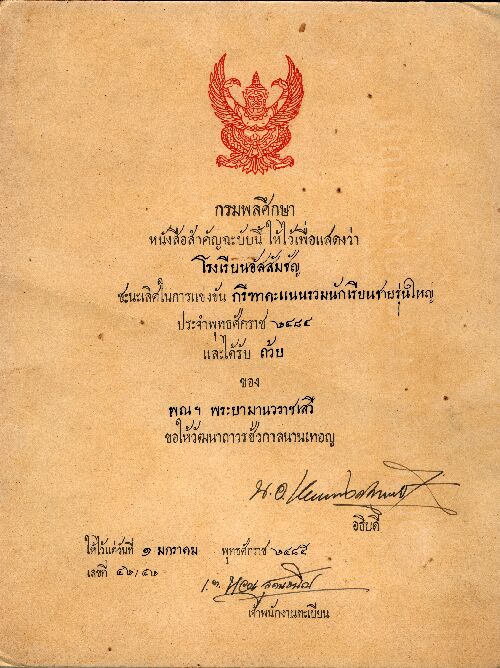 กรมพลศึกษา
หนังสือสำคัญฉะบับนี้ ให้ไว้เพื่อแสดงว่า
โรงเรียนอัสสัมชัญ
ชะนะเลิศในการแข่งขัน กรีฑาคะแนนรวมนักเรียนชายรุ่นใหญ่
ประจำพุทธศักราช ๒๔๘๔
และได้รับ ถ้วย
ของ
พณฯ พระยามานวราชเสวี
ขอให้วัฒนาถาวรชั่วกาลนานเทอญ
อธิบดี
ให้ไว้แต่วันที่ ๑ มกราคม พุทธศักราช ๒๔๘๕
เลขที่
เจ้าพนักงานทะเบียน